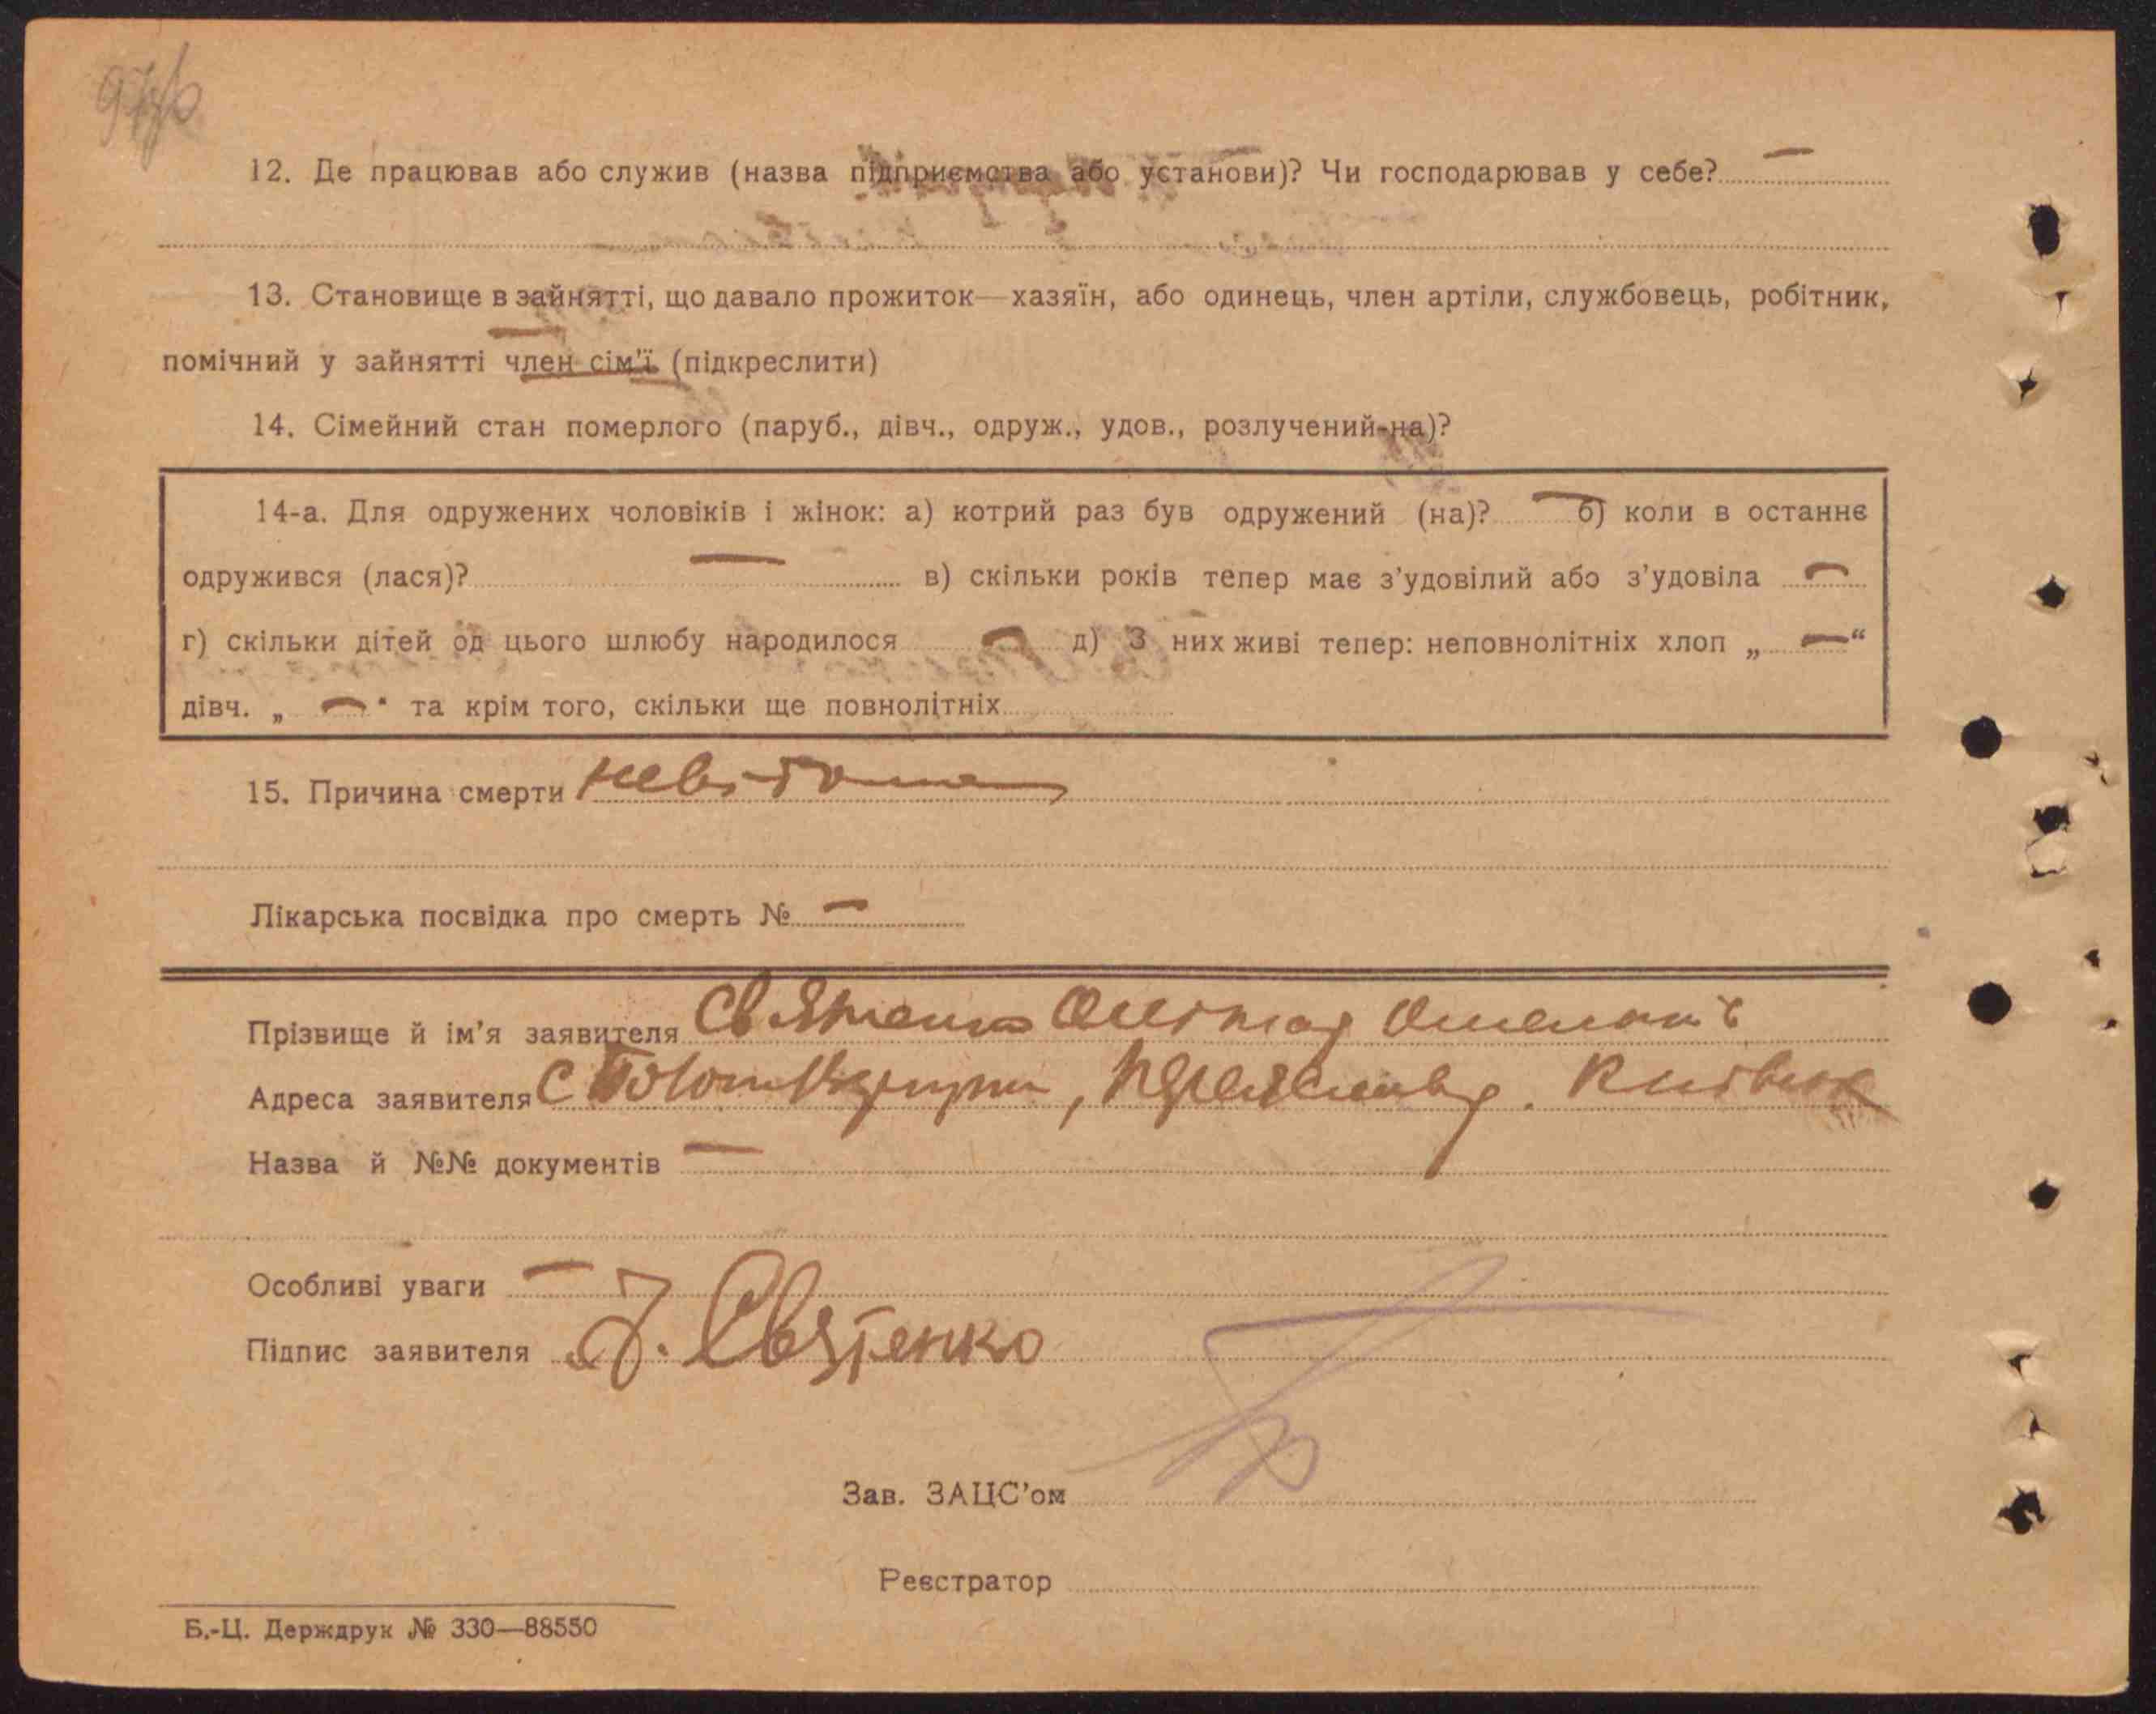 12. Де працював або служив (назва підприємства або установи)? Чи господарював у себе? —
13. Становище в зайнятті, що давало прожиток—хазяїн, або одинець, член артіли, службовець, робітник,
помічний у зайнятті член сім'ї (підкреслити)
14. Сімейний стан померлого (паруб., дівч., одруж., удов., розлучений-на)?
14-а. Для одружених чоловіків і жінок: а) котрий раз був одружений (на)? — б) коли в останнє
одружився (лася)? — в) скільки років тепер має з'удовілий або з'удовіла —
г) скільки дітей од цього шлюбу народилося — д) З них живі тепер: неповнолітніх хлоп „ — “
дівч. „ — “ та крім того, скільки ще повнолітніх
15. Причина смерти невідома
Лікарська посвідка про смерть № —
Прізвище й ім'я заявителя Святенко
Адреса заявителя с
Назва й №№ документів —
Особливі уваги —
Підпис заявителя Святенко
Зав. ЗАЦС'ом
Реєстратор
Б.-Ц. Держдрук № 330—88550